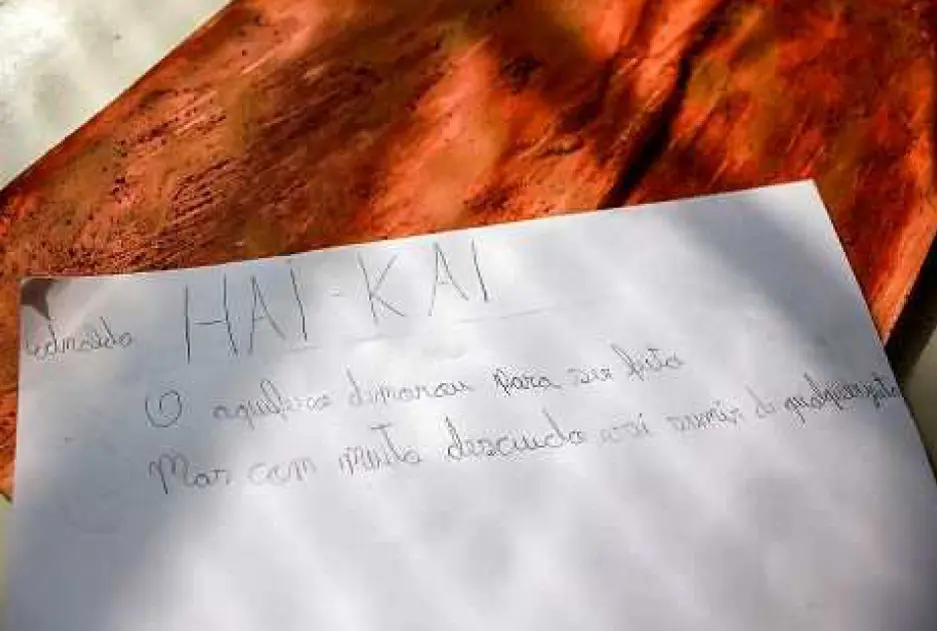 HAI-KAI
O aquífero demorou para ser feito
Mas com muito descuido vai sumir de qualquer jeito